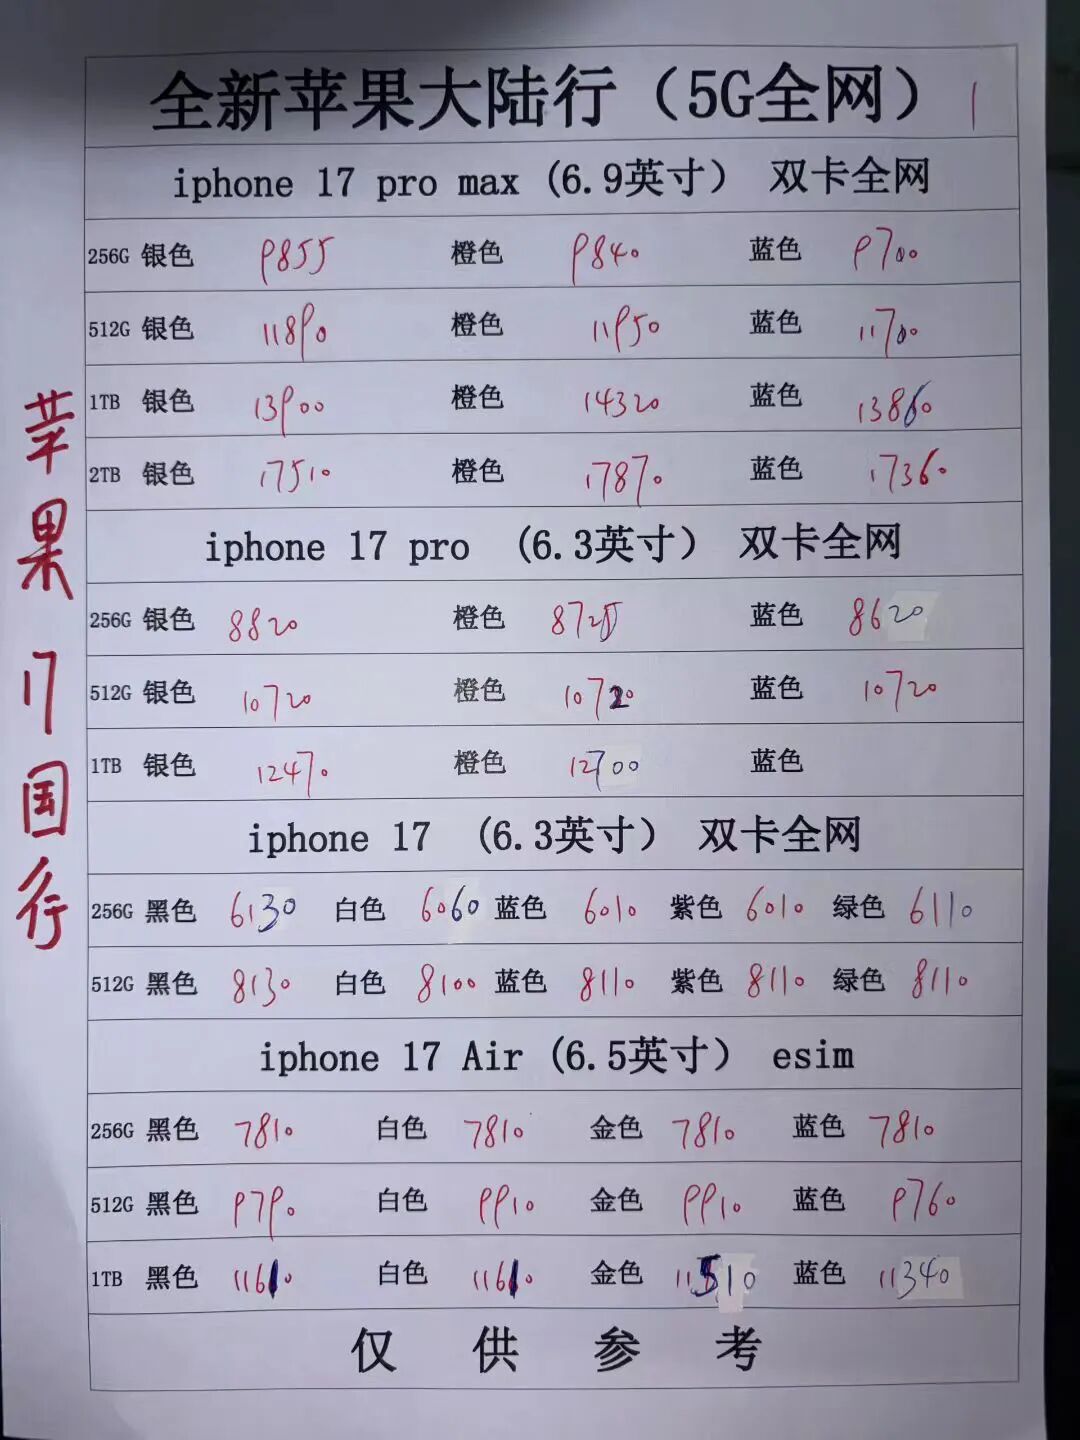 全新苹果大陆行（5G全网） 1
iphone 17 pro max (6.9英寸） 双卡全网
256G 银色 9855 橙色 9840 蓝色 9700
512G 银色 11890 橙色 11950 蓝色 11700
1TB 银色 13900 橙色 14320 蓝色 13860
2TB 银色 17510 橙色 17870 蓝色 17360
iphone 17 pro （6.3英寸） 双卡全网
256G 银色 8820 橙色 蓝色 8620
512G 银色 10720 橙色 10720 蓝色 10720
1TB 银色 12470 橙色 12700 蓝色
iphone 17 （6.3英寸） 双卡全网
256G 黑色 6130 白色 6060 蓝色 6010 紫色 6010 绿色 6110
512G 黑色 8130 白色 8100 蓝色 8110 紫色 8110 绿色 8110
iphone 17 Air (6.5英寸） esim
256G 黑色 7810 白色 7810 金色 7810 蓝色 7810
512G 黑色 9790 白色 9910 金色 9910 蓝色 9760
1TB 黑色 11610 白色 11610 金色 11510 蓝色 11340
仅供参考
苹果17国行